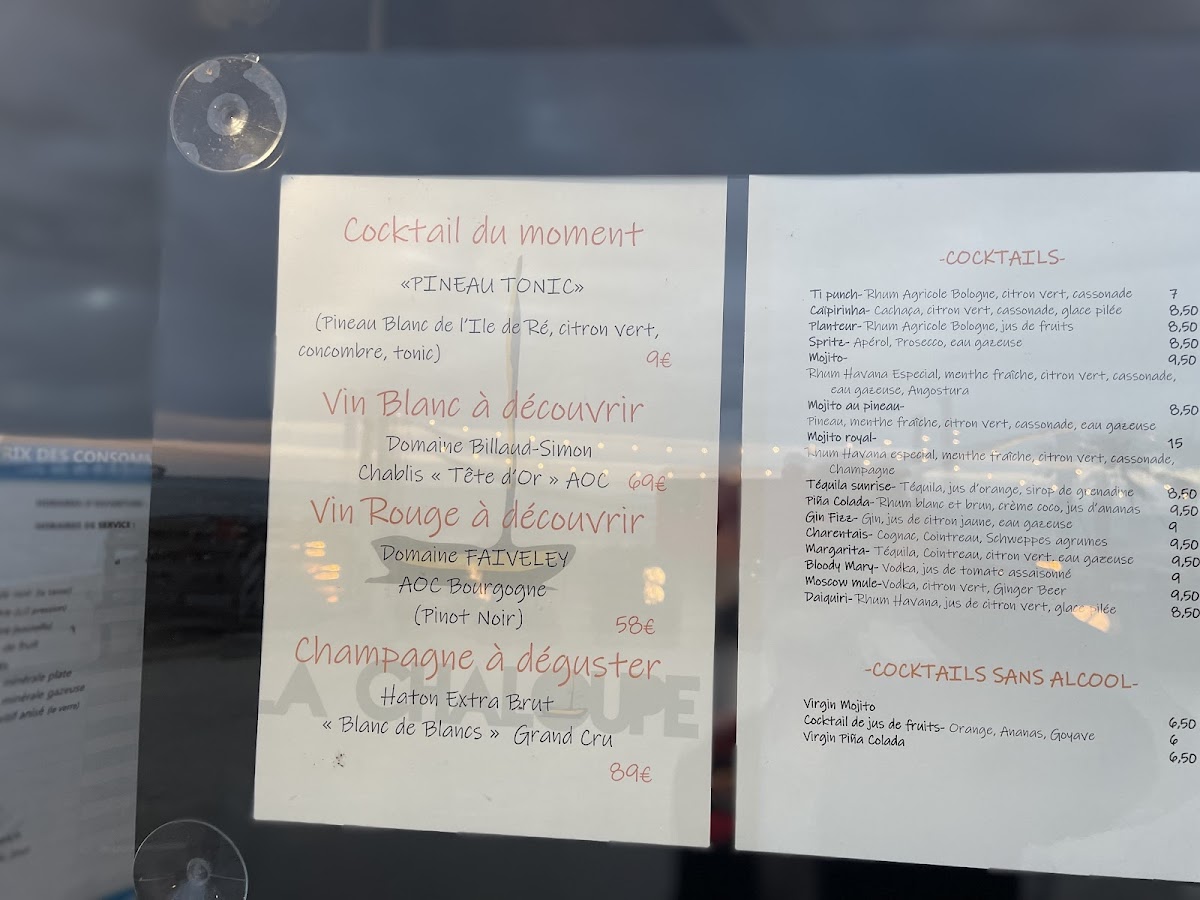 Cocktail du moment
«PINEAU TONIC»
(Pineau Blanc de l'Ile de Ré, citron vert,
concombre, tonic)
9€
Vin Blanc à découvrir
Domaine Billaud-Simon
Chablis « Tête d'Or » AOC 69€
Vin Rouge à découvrir
Domaine FAIVELEY
AOC Bourgogne
(Pinot Noir)
58€
Champagne à déguster
LA CHALOUPE
Haton Extra Brut
« Blanc de Blancs » Grand Cru
89€
-COCKTAILS-
Ti punch- Rhum Agricole Bologne, citron vert, cassonade 7
Caïpirinha- Cachaça, citron vert, cassonade, glace pilée 8,50
Planteur- Rhum Agricole Bologne, jus de fruits 8,50
Spritz- Apérol, Prosecco, eau gazeuse 8,50
Mojito- 9,50
Rhum Havana Especial, menthe fraîche, citron vert, cassonade,
eau gazeuse, Angostura
Mojito au pineau- 8,50
Pineau, menthe fraîche, citron vert, cassonade, eau gazeuse
Mojito royal- 15
Rhum Havana especial, menthe fraîche, citron vert, cassonade,
Champagne
Téquila sunrise- Téquila, jus d'orange, sirop de grenadine 8,50
Piña Colada- Rhum blanc et brun, crème coco, jus d'ananas 9,50
Gin Fizz- Gin, jus de citron jaune, eau gazeuse 9
Charentais- Cognac, Cointreau, Schweppes agrumes 9,50
Margarita- Téquila, Cointreau, citron vert, eau gazeuse 9,50
Bloody Mary- Vodka, jus de tomate assaisonné 9
Moscow mule-Vodka, citron vert, Ginger Beer 9,50
Daiquiri- Rhum Havana, jus de citron vert, glace pilée 8,50
-COCKTAILS SANS ALCOOL-
Virgin Mojito 6,50
Cocktail de jus de fruits- Orange, Ananas, Goyave 6
Virgin Piña Colada 6,50
RIX DES CONSOM
HORAIRES DE SERVICE :
de fruit
minérale plate
minérale gazeuse